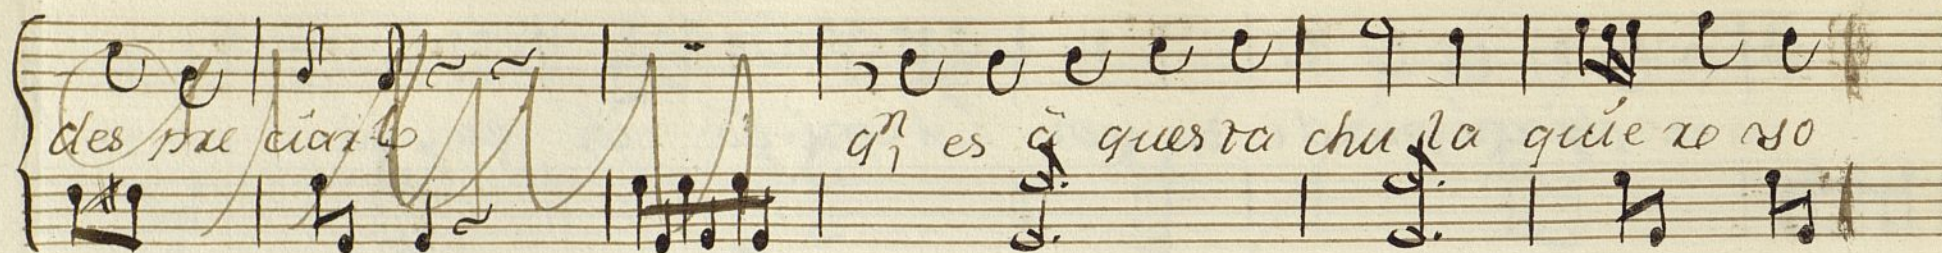 des pre ciarlo qⁿ es à questa chu la quie ro yo